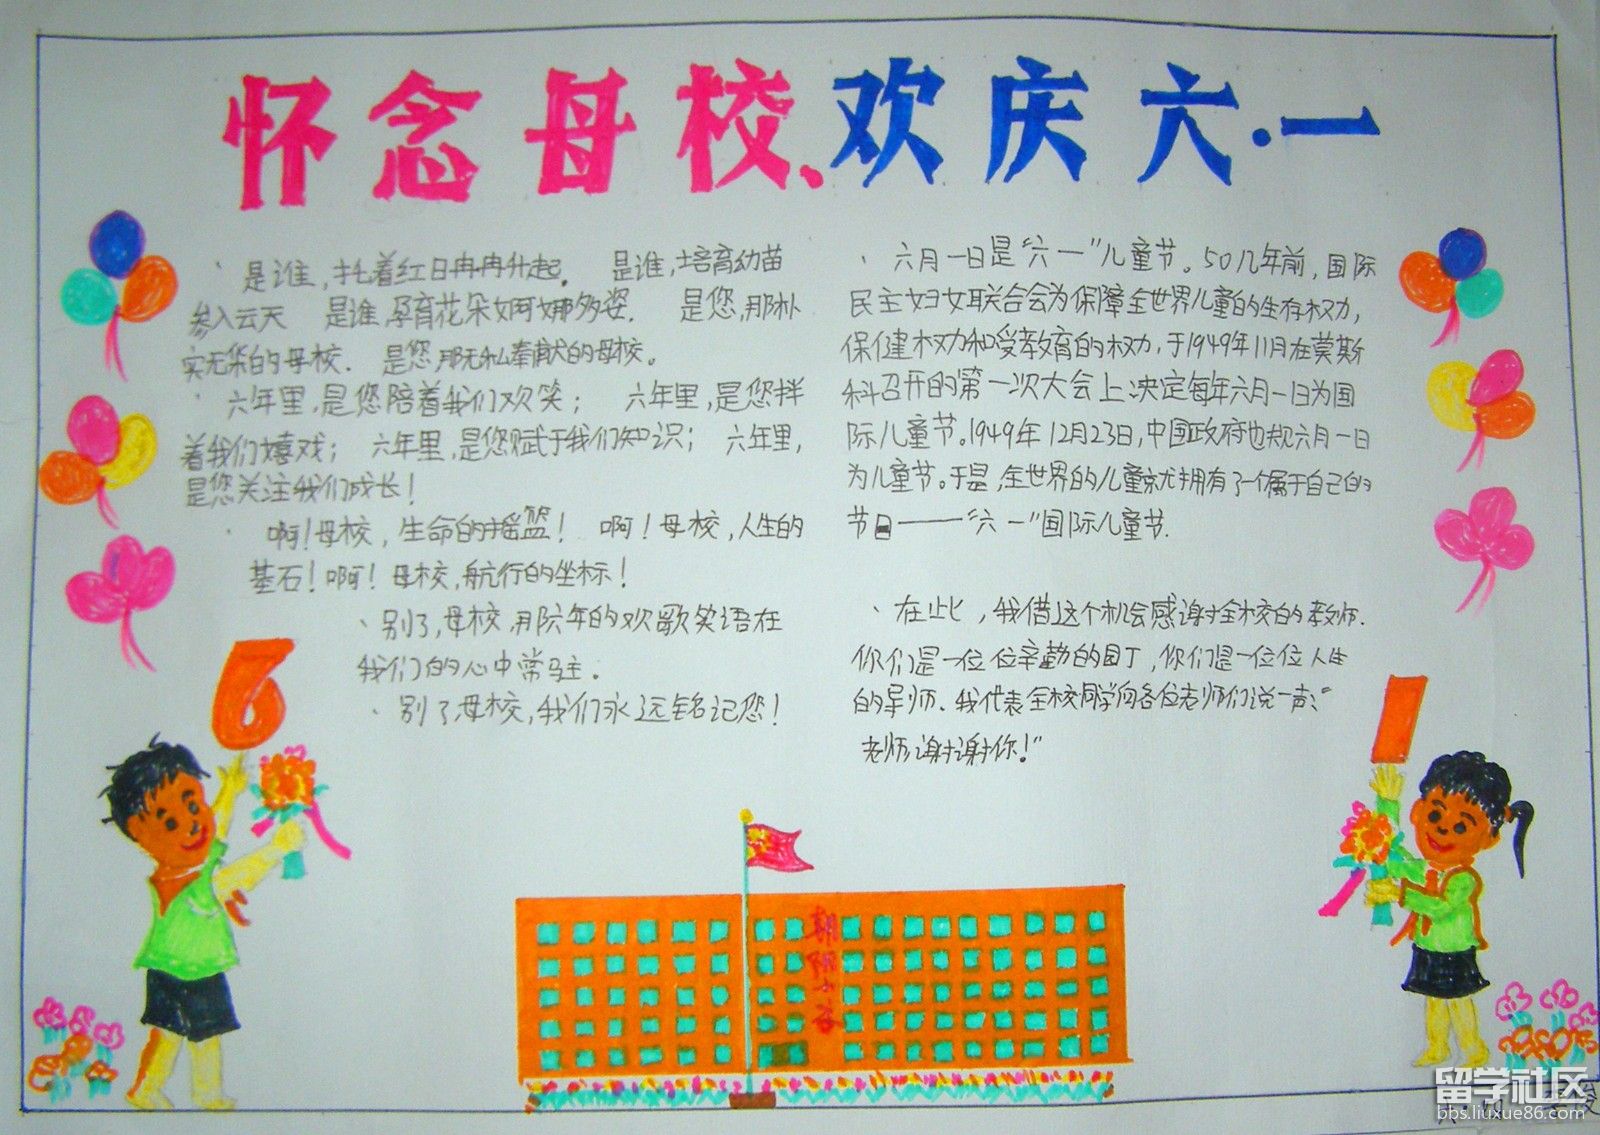 怀念母校、欢庆六·一
、是谁,托着红日冉冉升起。 是谁,培育幼苗
参入云天 是谁,孕育花朵婀娜多姿. 是您,那朴
实无华的母校. 是您,那无私奉献的母校。
、六年里,是您陪着我们欢笑; 六年里,是您拌
着我们嬉戏; 六年里,是您赋于我们知识; 六年里,
是您关注我们成长!
、啊!母校,生命的摇篮! 啊!母校,人生的
基石!啊!母校,航行的坐标!
、别了,母校,那六年的欢歌笑语在
我们的心中常驻.
、别了,母校,我们永远铭记您!
、六月一日是“六一”儿童节。50几年前,国际
民主妇女联合会为保障全世界儿童的生存权力,
保健权力和受教育的权力,于1949年11月在莫斯
科召开的第一次大会上决定每年六月一日为国
际儿童节。1949年12月23日,中国政府也规六月一日
为儿童节。于是,全世界的儿童就拥有了一个属于自己的
节日——“六一”国际儿童节.
、在此,我借这个机会感谢全校的教师.
你们是一位位辛勤的园丁,你们是一位位人生
的导师、我代表全校同学向各位老师们说一声:“
老师谢谢你!”
6
1
朝阳小学
留学社区
bbs.liuxue86.com